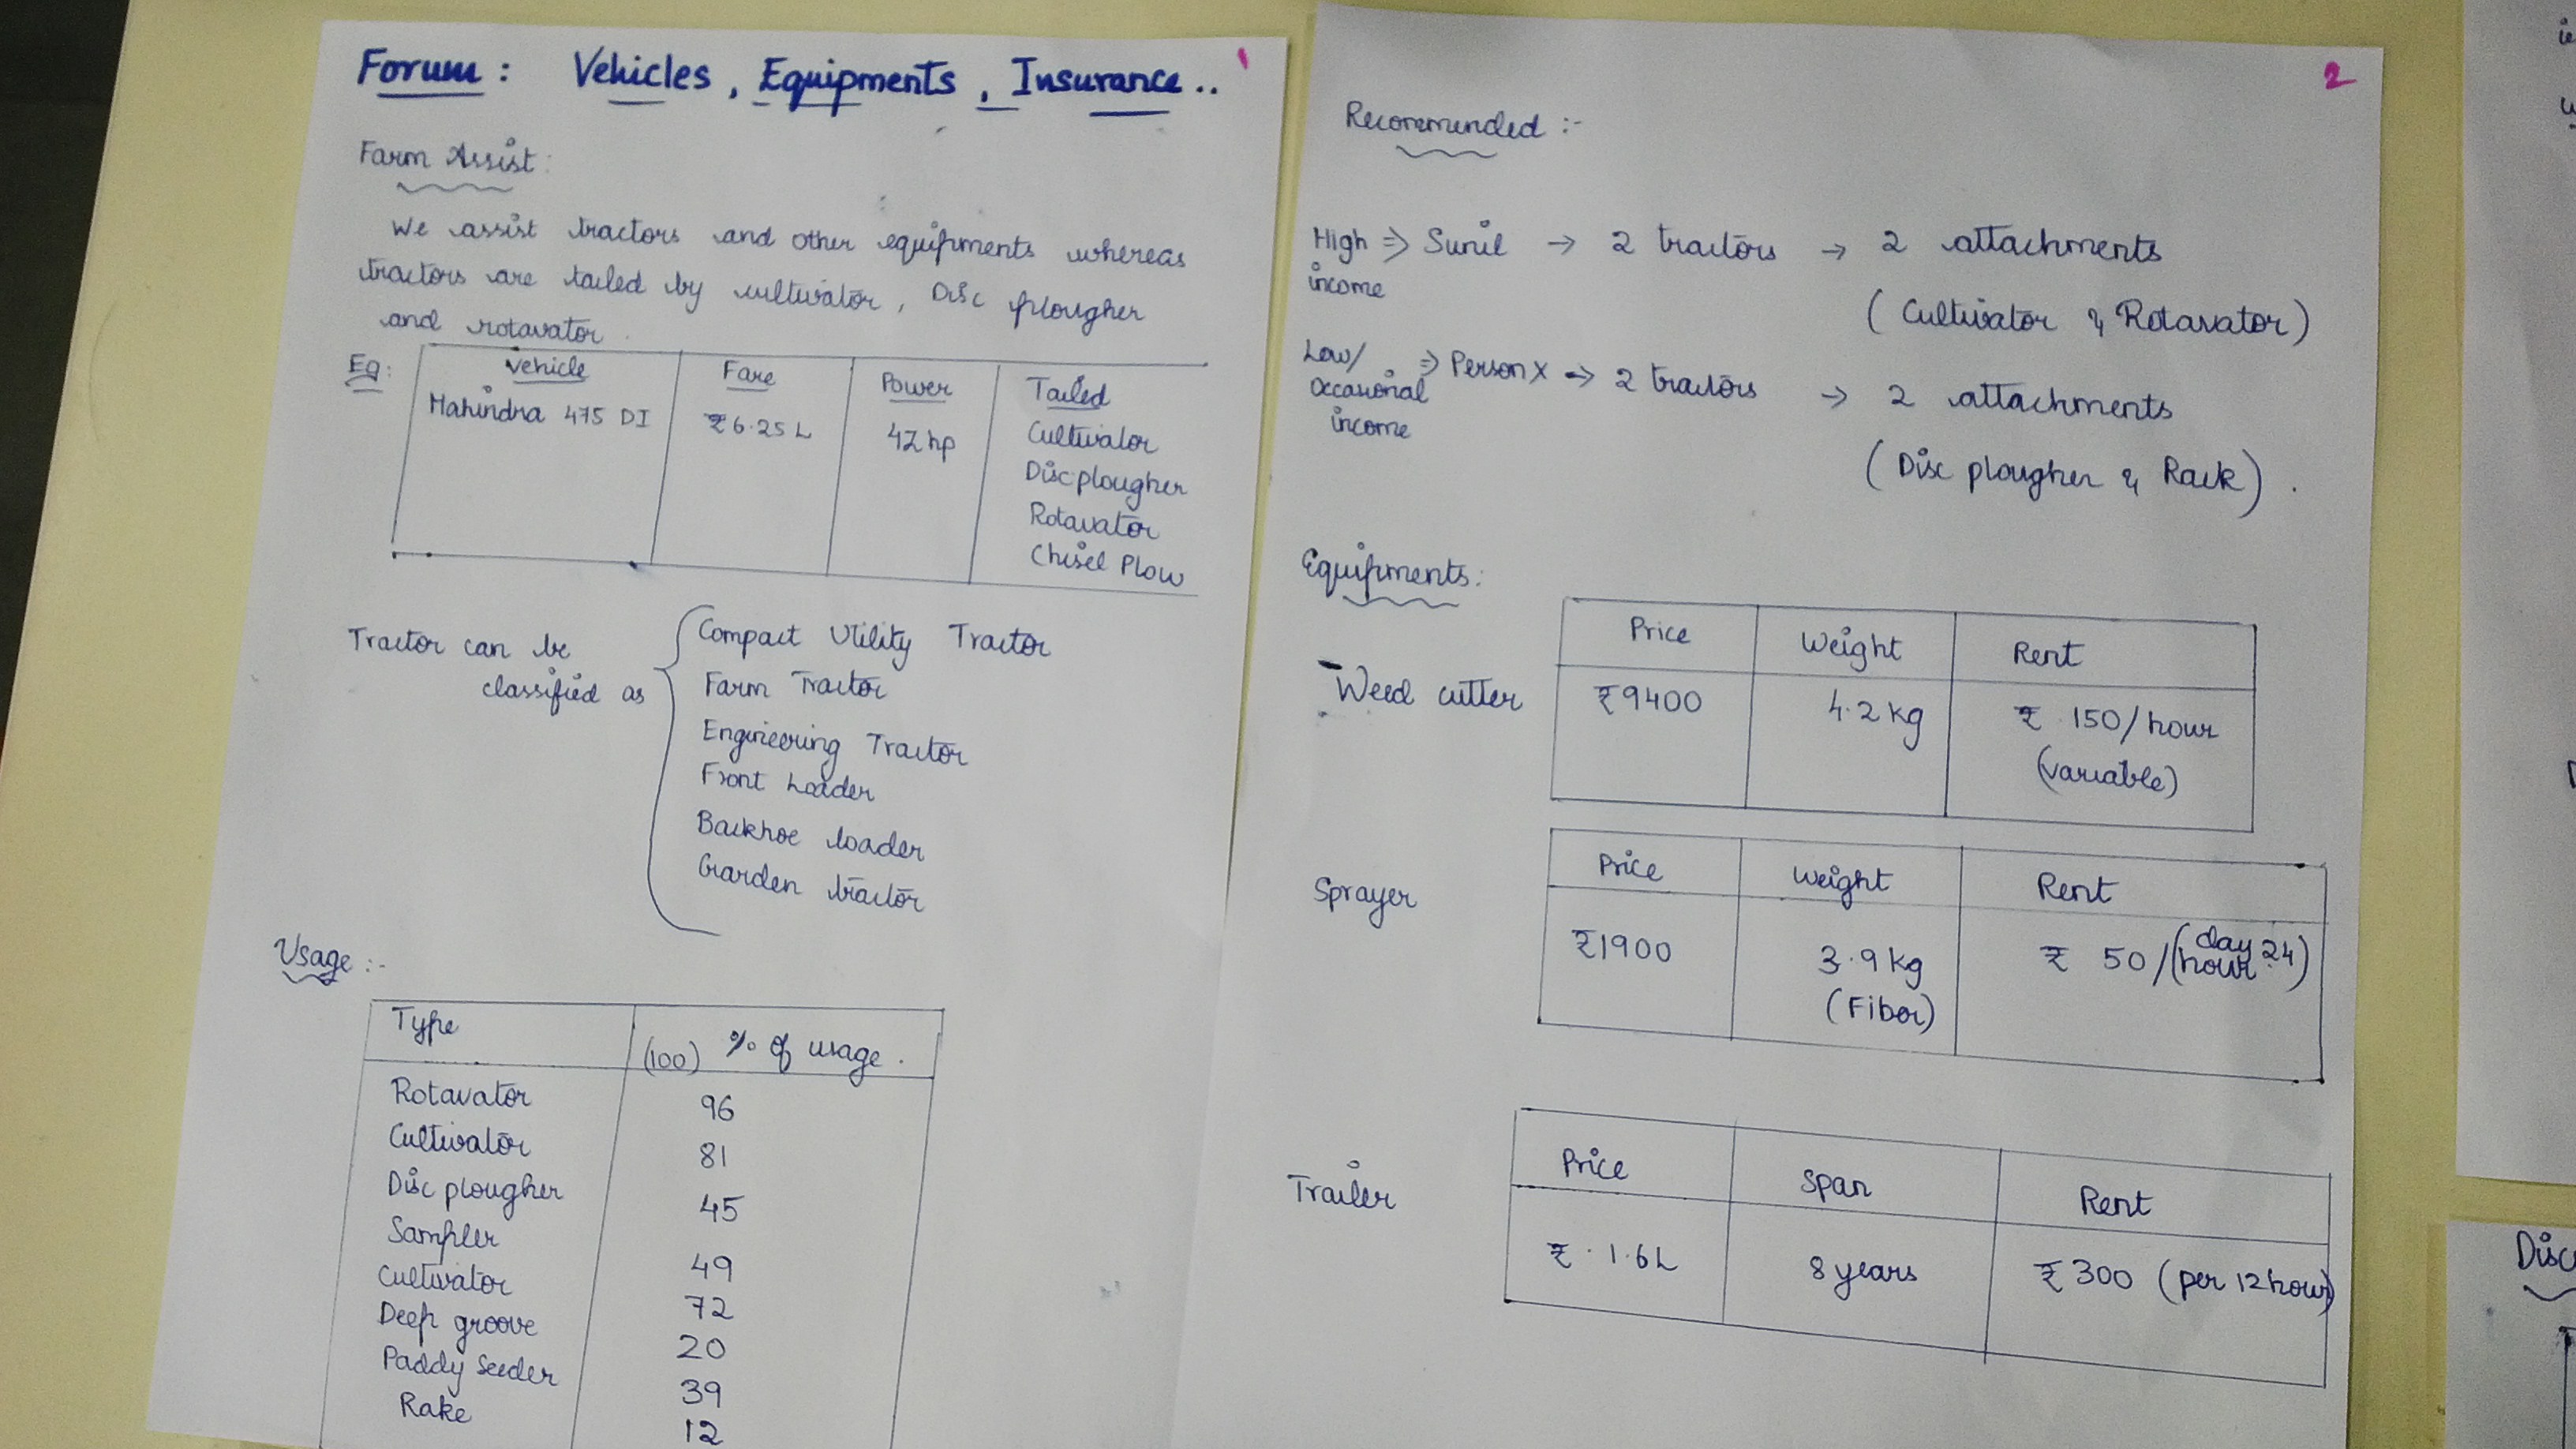 Forum : Vehicles, Equipments, Insurance..
1
Farm Assist :
We assist tractors and other equipments whereas
tractors are tailed by cultivator, Disc plougher
and rotavator.
Eg:
Vehicle Fare Power Tailed
Mahindra 475 DI ₹6.25L 42hp Cultivator
Disc plougher
Rotavator
Chisel Plow
Tractor can be
classified as
Compact Utility Tractor
Farm Tractor
Engineering Tractor
Front Loader
Backhoe loader
Garden tractor
Usage :-
Type (100) % of usage.
Rotavator 96
Cultivator 81
Disc plougher 45
Sampler 49
Cultivator 72
Deep groove 20
Paddy Seeder 39
Rake 12
2
Recommended :-
High ⇒ Sunil → 2 tractors → 2 attachments
income
(Cultivator & Rotavator)
Low/
occasional ⇒ Person X → 2 tractors → 2 attachments
income
(Disc plougher & Raek).
Equipments :
Weed cutter
Price Weight Rent
₹9400 4.2kg ₹.150/hour
(variable)
Sprayer
Price Weight Rent
₹1900 3.9kg ₹ 50/(day 24
(Fiber) hour)
Trailer
Price Span Rent
₹.1.6L 8 years ₹300 (per 12hour)
Disc